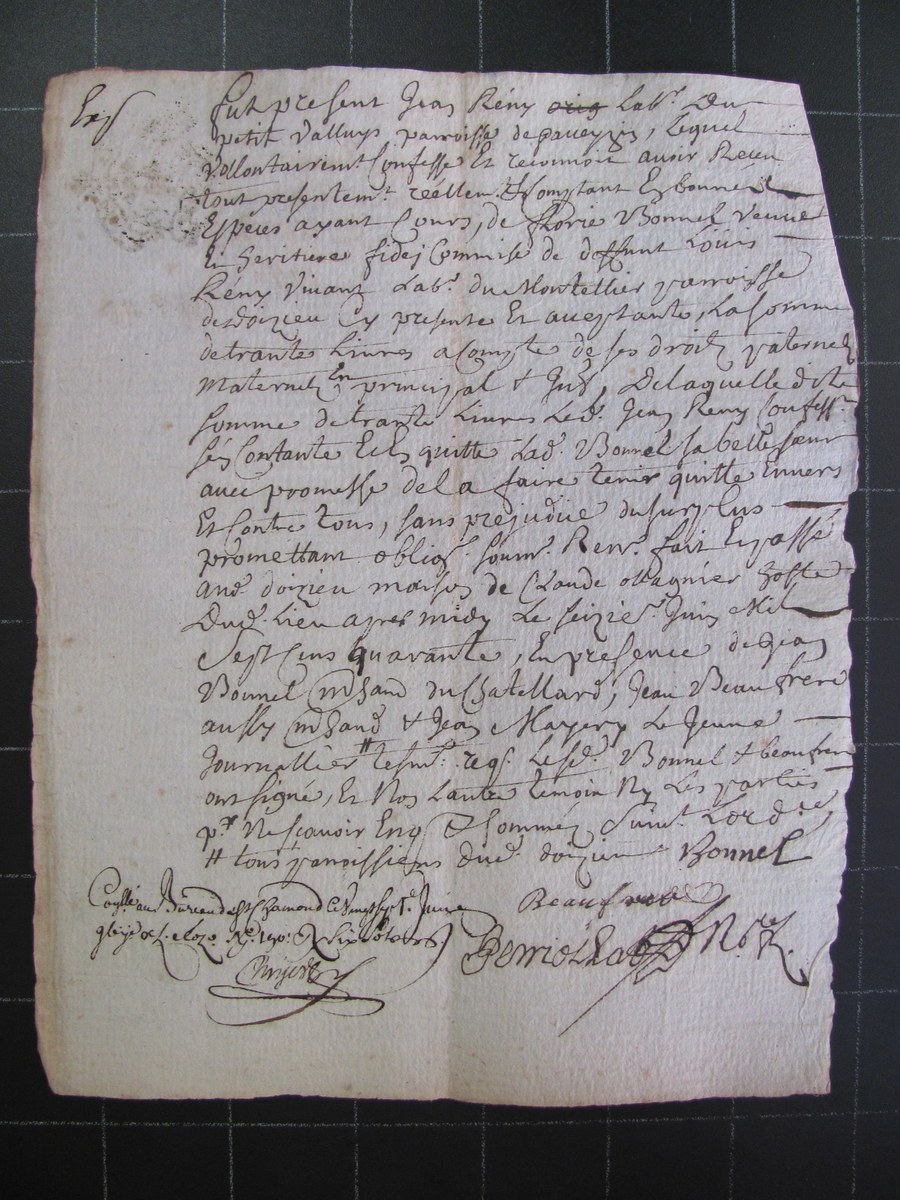 Exp
Fut present Jean Rény orig Lab.r Du
petit Valluys parroisse de paveyzin, Lequel
Vollontairemt Confesse Et reconnoit avoir Receu
tout presentemt. réellemt. & Comptant En bonnes
Espèces ayant Cours, de florie Bonnel veuve
Et heritiere fideiCommise de deffunt Loüis
Rény Vivant Lab.r du Montellier parroisse
de doizieu Cy presente Et aceptante, La somme
de trante Livres a Compte de ses droits paternels
maternels En principal & Int., De laquelle dite
somme de trante Livres Led. Jean Reny Confesse
Contante Et En quitte Lad. Bonnel sa belle soeur
avec promesse de la faire tenir quitte Envers
Et Contre tous, sans prejudice du surplus
promettant oblig. soum. Ren. fait Et passé
aud. doizieu maison de Claude Magnier hoste
Dud. Lieu apres midy Le seizie. Juin Mil
Sept Cens quarante, En presence de Jean
Bonnel mchand du Chatellard, Jean Beaufrere
aussy mchand & Jean Mayery Le Jeune
Journallier # tesm. req. Lesd. Bonnel & beaufrere
ont signé, Et Non Lautre temoin Ny Les parties
pr. Ne scavoir Enq & sommés Suivt. Lord.ce
# tous parroissiens dud. doizieu Bonnel
Beaufrere
au Bureau de St Chamond Ce vingt sept Juin